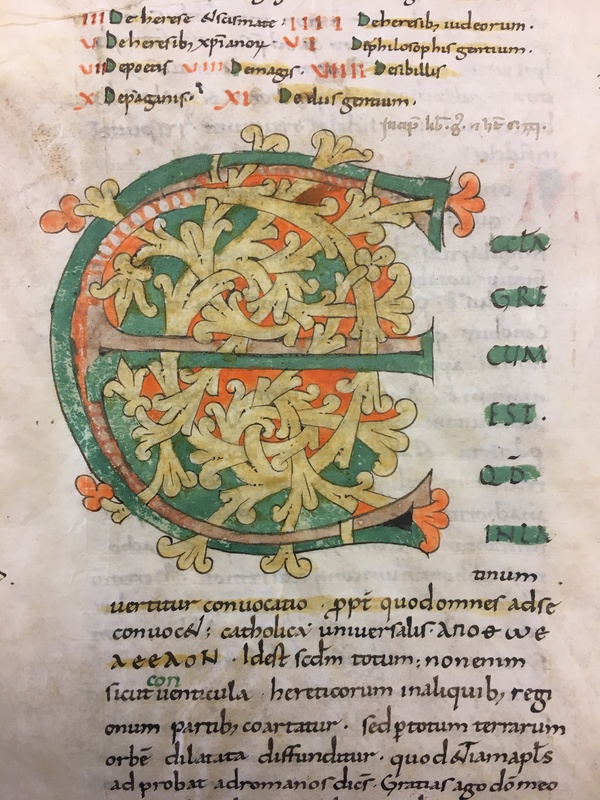 III De herese & scismate. IIII De heresib; iudeorum.
V De heresib; xp̄ianoꝝ VI De philosophis gentium.
VII De poetis VIII De magis. VIIII De sibillis
X De paganis. XI De diis gentium.
Incip̄ lib̄.
E
CCLA
GRE
CUM
EST.
QD̄
INLA
tinum
uertitur conuocatio. ꝓpt̄ quod omnes ad se
conuoc&; catholica uniuersalis. ΑΠΟ
Idest scdm̄ totum; non enim
con
sicut uenticula hereticorum in aliquib; regi
onum partib; coartatur. sed ꝑ totum terrarum
orbē dilatata diffunditur. quod &iam apl̄s
adprobat ad romanos dicr̄. Gratias ago dō meo